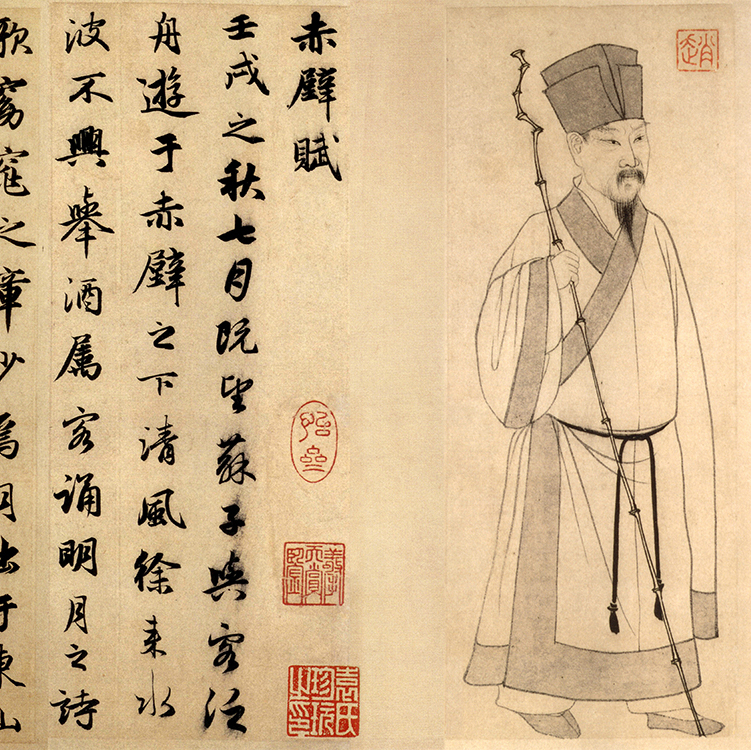 趙
赤壁賦
壬戌之秋七月既望蘇子與客泛
舟遊于赤壁之下清風徐来水
波不興舉酒属客誦明月之詩
歌窈窕之章少焉月出于東山